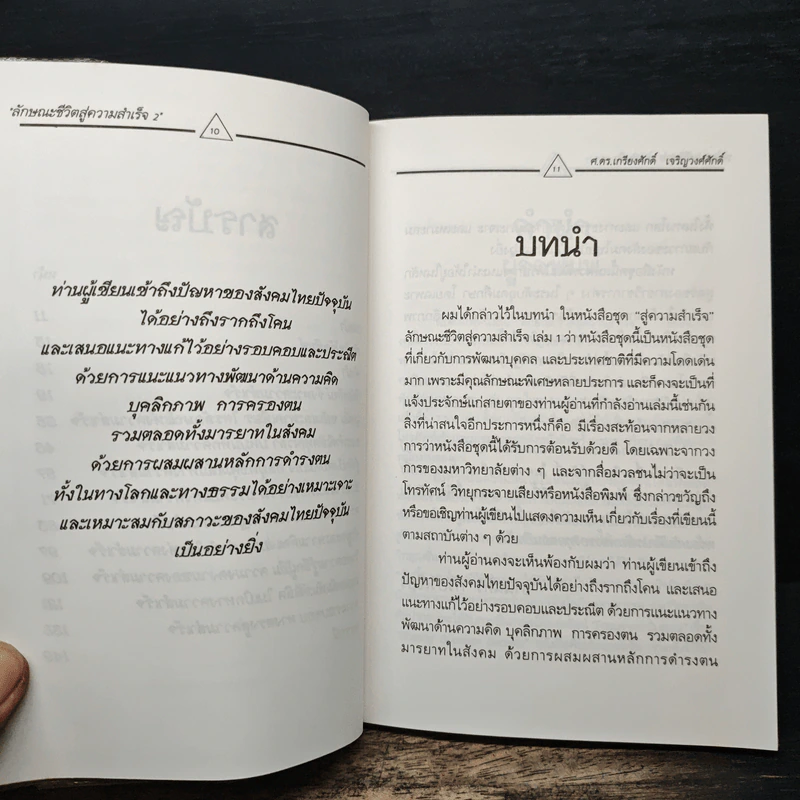 "ลักษณะชีวิตสู่ความสำเร็จ 2"
10
ท่านผู้เขียนเข้าถึงปัญหาของสังคมไทยปัจจุบัน
ได้อย่างถึงรากถึงโคน
และเสนอแนะทางแก้ไว้อย่างรอบคอบและประณีต
ด้วยการแนะแนวทางพัฒนาด้านความคิด
บุคลิกภาพ การครองตน
รวมตลอดทั้งมารยาทในสังคม
ด้วยการผสมผสานหลักการดำรงตน
ทั้งในทางโลกและทางธรรมได้อย่างเหมาะเจาะ
และเหมาะสมกับสภาวะของสังคมไทยปัจจุบัน
เป็นอย่างยิ่ง
11
ศ.ดร.เกรียงศักดิ์ เจริญวงศ์ศักดิ์
บทนำ
ผมได้กล่าวไว้ในบทนำ ในหนังสือชุด "สู่ความสำเร็จ"
ลักษณะชีวิตสู่ความสำเร็จ เล่ม 1 ว่า หนังสือชุดนี้เป็นหนังสือชุด
ที่เกี่ยวกับการพัฒนาบุคคล และประเทศชาติที่มีความโดดเด่น
มาก เพราะมีคุณลักษณะพิเศษหลายประการ และก็คงจะเป็นที่
แจ้งประจักษ์แก่สายตาของท่านผู้อ่านที่กำลังอ่านเล่มนี้เช่นกัน
สิ่งที่น่าสนใจอีกประการหนึ่งก็คือ มีเรื่องสะท้อนจากหลายวง
การว่าหนังสือชุดนี้ได้รับการต้อนรับด้วยดี โดยเฉพาะจากวง
การของมหาวิทยาลัยต่าง ๆ และจากสื่อมวลชนไม่ว่าจะเป็น
โทรทัศน์ วิทยุกระจายเสียงหรือหนังสือพิมพ์ ซึ่งกล่าวขวัญถึง
หรือขอเชิญท่านผู้เขียนไปแสดงความเห็น เกี่ยวกับเรื่องที่เขียนนี้
ตามสถาบันต่าง ๆ ด้วย
ท่านผู้อ่านคงจะเห็นพ้องกับผมว่า ท่านผู้เขียนเข้าถึง
ปัญหาของสังคมไทยปัจจุบันได้อย่างถึงรากถึงโคน และเสนอ
แนะทางแก้ไว้อย่างรอบคอบและประณีต ด้วยการแนะแนวทาง
พัฒนาด้านความคิด บุคลิกภาพ การครองตน รวมตลอดทั้ง
มารยาทในสังคม ด้วยการผสมผสานหลักการดำรงตน